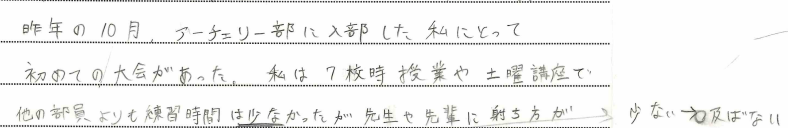 昨年の10月、アーチェリー部に入部した私にとって
初めての大会があった。私は7校時授業や土曜講座で
他の部員よりも練習時間は少なかったが先生や先輩に射ち方が 少ない→及ばない